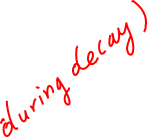 during decay)